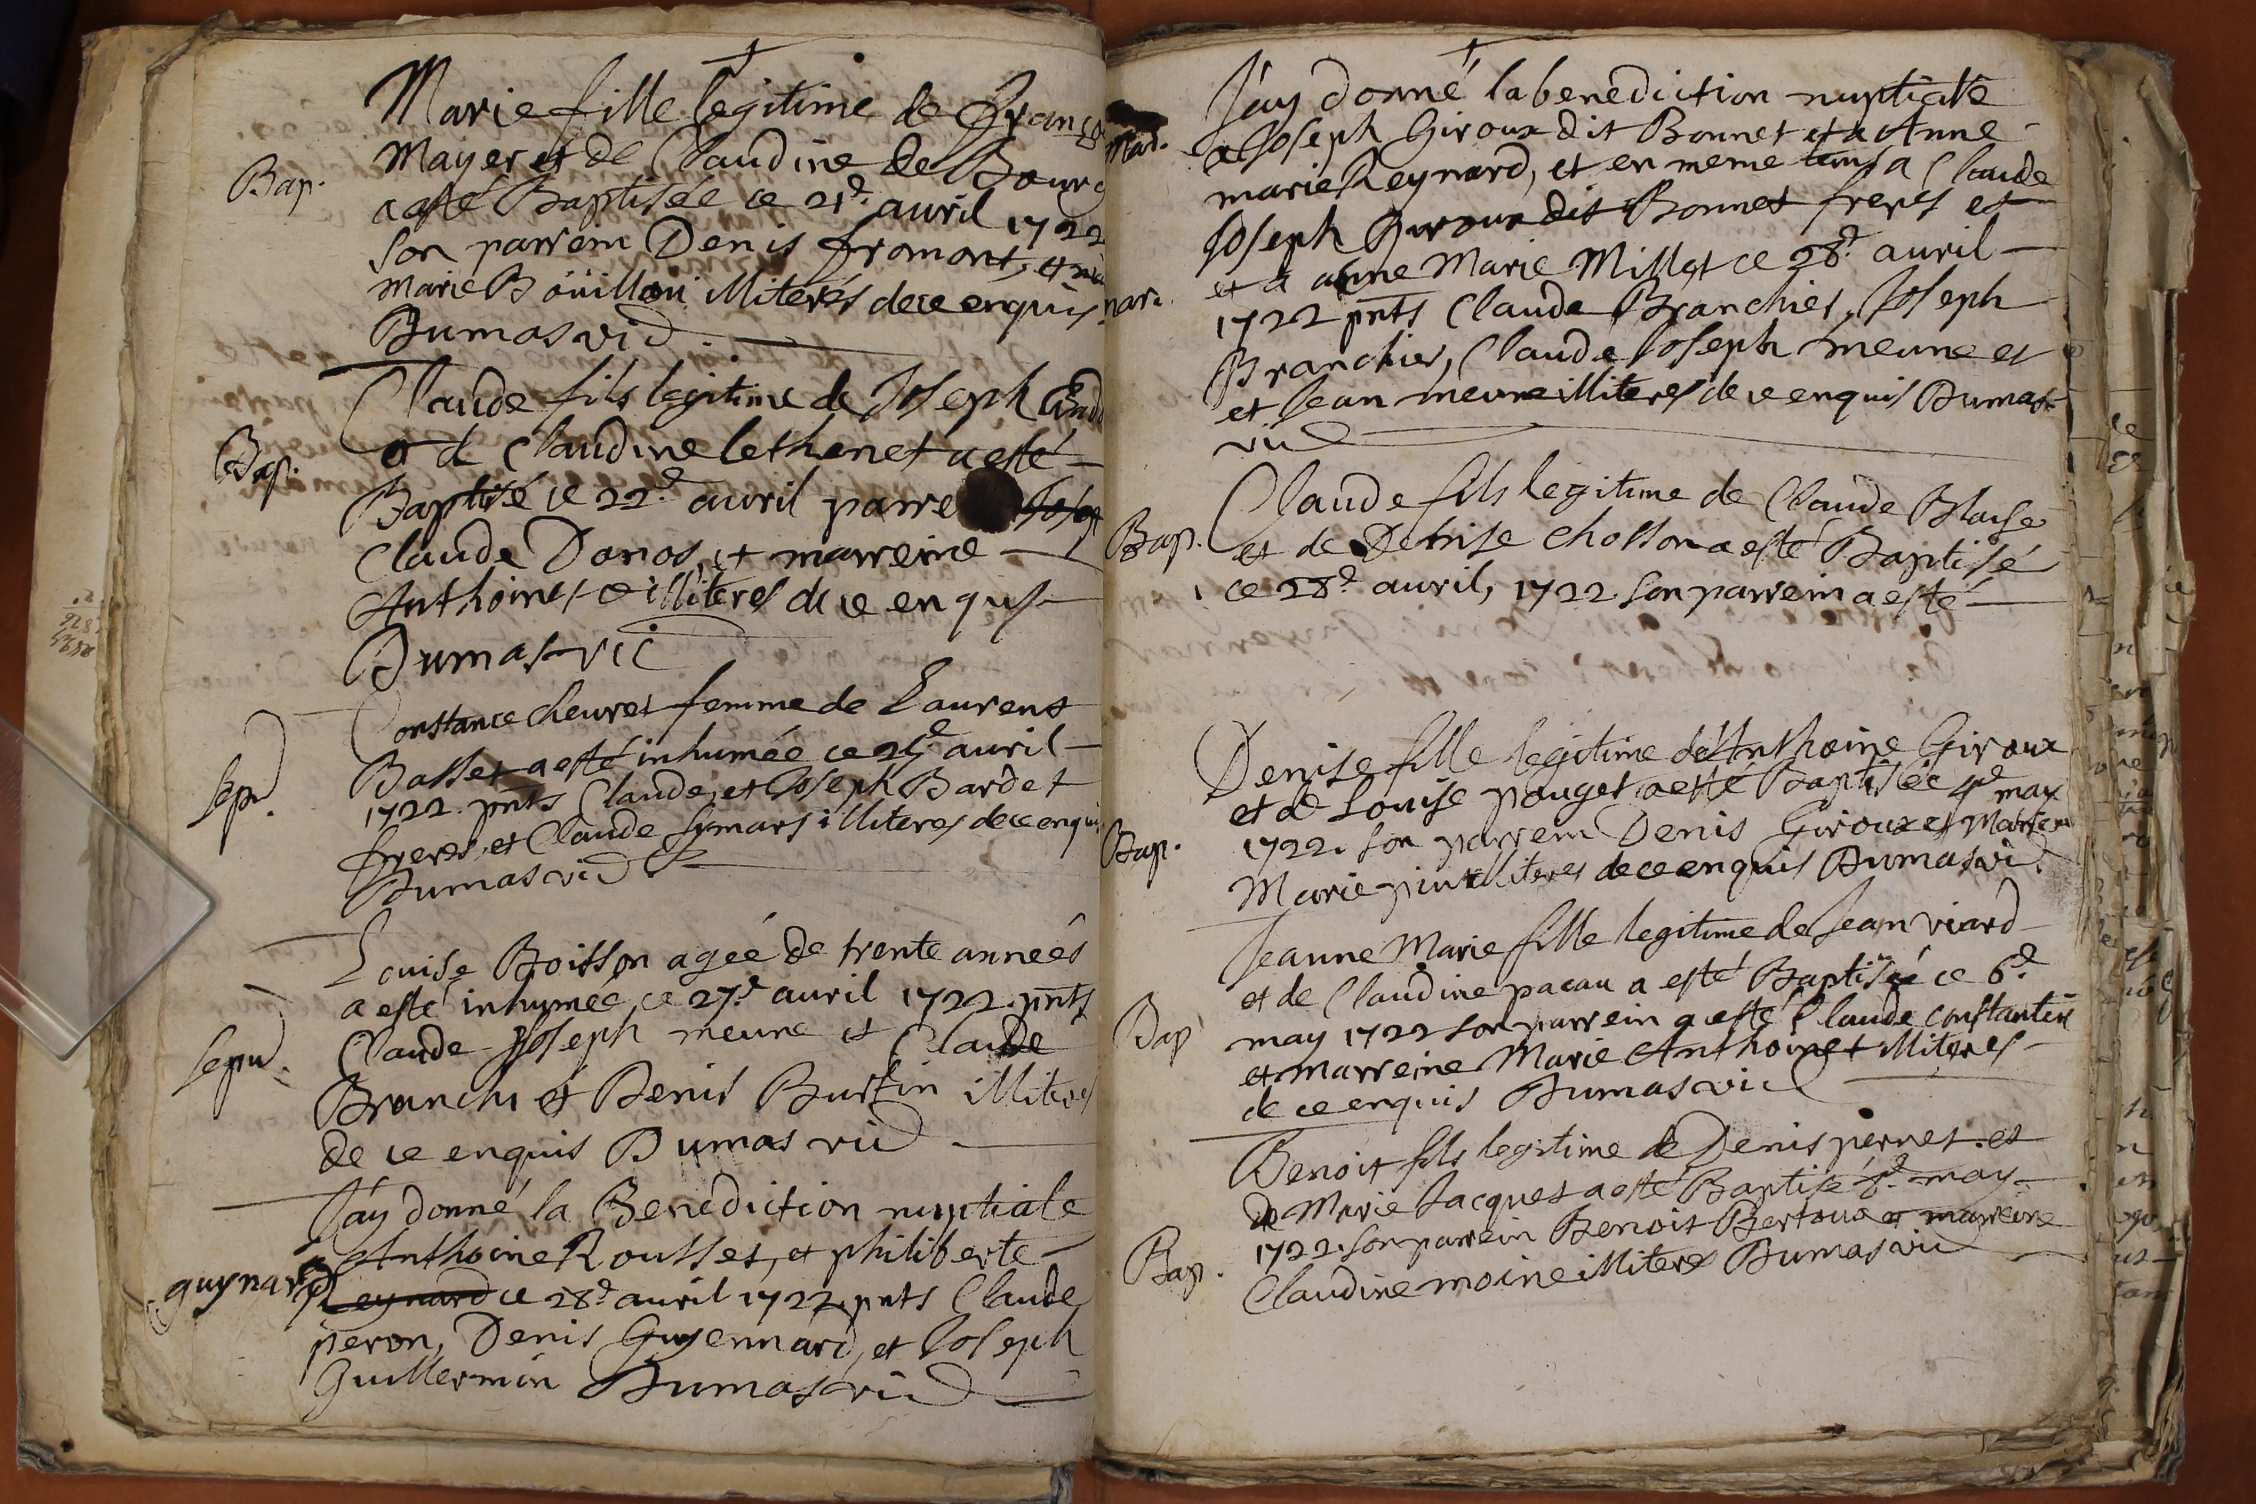 Marie fille legitime de
Bap.
Mayer et de Claudine de Bourg
a esté Baptisée ce 21e. avril 1722
son parrein Denis fromont, et
Marie Boüillon illiterés de ce enquis
Dumas vic
Claude fils legitime de Joseph
Bap.
de Claudine lethenet a esté
Baptisé ce 22e avril parre
Claude Danos, et marreine
Anthoinette illiteres de ce enquis
Dumas vic
Constance cheuret femme de Laurens
Basset a esté inhumée ce 25e avril
Sepu.
1722. pnts Claude, et Joseph Bardet
freres, et Claude illiteres de ce enquis
Dumas vic
Louise Boisson agée de trente années
a esté inhumée, ce 27e. avril 1722. pnts
Sepu.
Claude Joseph meune et Claude
et Denis Burtin illiteres
de ce enquis Dumas vic
J'ay donné la Benediction nuptiale
a Anthoine Rousset, et philiberte
guynard
Reynard ce 28e avril 1722, pnts Claude
peron, Denis Guyennard, et Joseph
Guillermin Dumas vic
J'ay donné la benediction nuptiale
Mar.
a Joseph Giroux dit Bonnet et a Anne
marie Reynard, et en meme tems a Claude
Joseph Giroux dit Bonnet freres et
et a anne Marie Millet ce 28e. avril
mari.
1722 pnts Claude Branchier, Joseph
Branchier, Claude Joseph meune et
et Jean meune illiteres de ce enquis Dumas
vic
Claude fils legitime de Claude Blaise
Bap.
et de Denise Chosson a esté Baptisé
ce 28e avril, 1722 son parrein a esté
Denise fille legitime de Anthoine Giroux
et de Louise pouget a esté Baptisée 4e may
Bap.
1722. son parrein Denis Giroux et Marreine
Marie illiteres de ce enquis Dumas vic
Jeanne Marie fille legitime de Jean viard
et de Claudine pacau a esté Baptisée ce 6e.
Bap
may 1722 son parrein a esté Claude constantin
et marreine Marie Anthoinet illiteres
de ce enquis Dumas vic
Benoit fils legitime de Denis pernet et
de Marie Jacquet a esté Baptisé may
Bap.
1722. son parrein Benoit Bertoux et marreine
Claudine moine illiteres Dumas vic